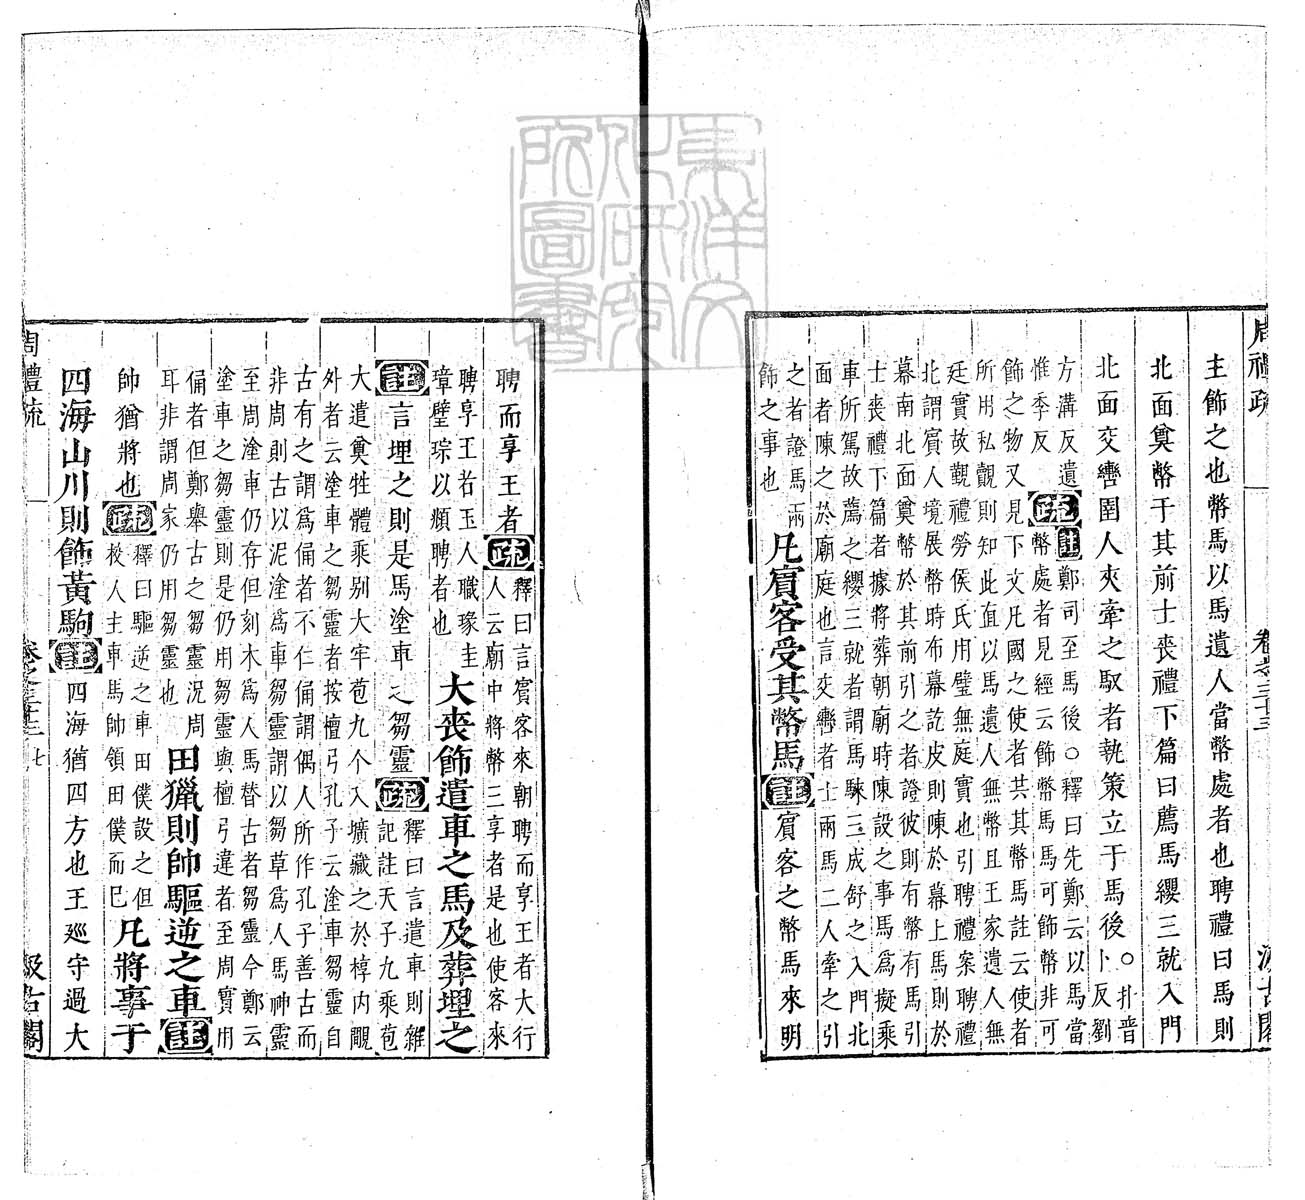 東洋文
化研究
所圖書
周禮疏 卷之三十三 汲古閣
主飾之也幣馬以馬遺人當幣處者也聘禮曰馬則
北面奠幣于其前士喪禮下篇曰薦馬纓三就入門
北面交轡圉人夾牽之馭者執策立于馬後○扑普
卜反劉
方溝反遺
惟季反
疏註鄭司至馬後○釋曰先鄭云以馬當
幣處者見經云飾幣馬馬可飾幣非可
飾之物又見下文凡國之使者共其幣馬註云使者
所用私覿則知此直以馬遺人無幣且王家遺人無
廷實故覲禮勞侯氏用璧無庭實也引聘禮案聘禮
北謂賓人境展幣時布幕訖皮則陳於幕上馬則於
幕南北面奠幣於其前引之者證彼則有幣有馬引
士喪禮下篇者據將葬朝廟時陳設之事馬爲擬乘
車所駕故薦之纓三就者謂馬駷三成舒之入門北
面者陳之於廟庭也言交轡者士兩馬二人牽之引
之者證馬兩
飾之事也
凡賓客受其幣馬註賓客之幣馬來明
聘而享王者疏釋曰言賓客來朝聘而享王者大行
人云廟中將幣三享者是也使客來
聘享王者玉人職瑑圭
璋璧琮以頫聘者也
大喪飾遣車之馬及葬埋之
註言埋之則是馬塗車之芻靈疏釋曰言遣車則雜
記註天子九乘苞
大遣奠牲體乘別大牢苞九个入壙藏之於椁内覵
外者云塗車之芻靈者按檀弓孔子云塗車芻靈自
古有之謂爲俑者不仁俑謂偶人所作孔子善古而
非周則古以泥塗爲車芻靈謂以芻草爲人馬神靈
至周塗車仍存但刻木爲人馬替古者芻靈今鄭云
塗車之芻靈則是仍用芻靈與檀弓違者至周實用
俑者但鄭舉古之芻靈況周
耳非謂周家仍用芻靈也
田獵則帥驅逆之車註
帥猶將也疏釋曰驅逆之車田僕設之但
校人主車馬帥領田僕而已
凡將事于
四海山川則飾黃駒註四海猶四方也王廵守過大
周禮疏 卷之三十三 七 汲古閣